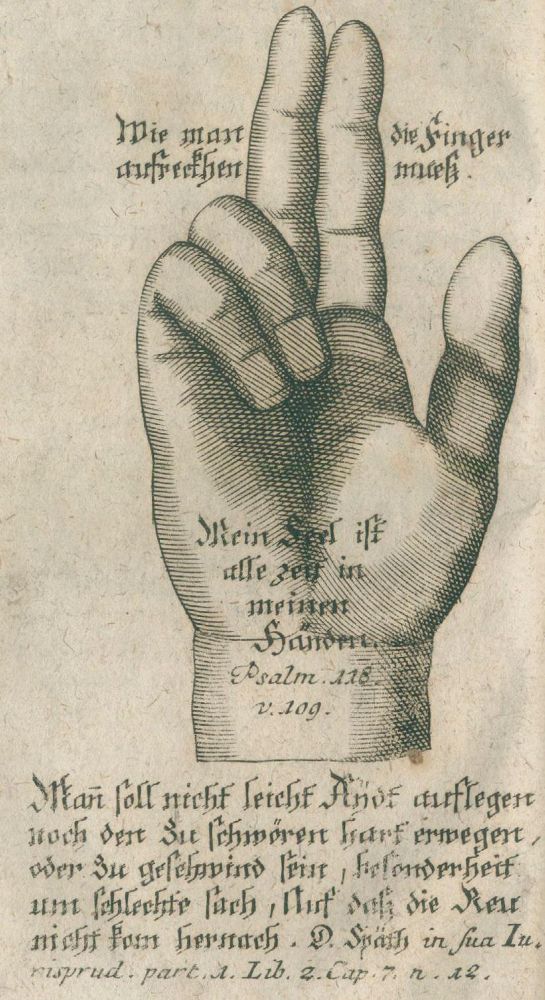 Wie man die Finger
aufreckhen mueß.
Mein Seel ist
alle zeit in
meinen
Händen.
Psalm. 118.
v. 109.
Man̄ soll nicht leicht Aÿdt auflegen
noch den Zu schwören hart erwegen,
oder Zu geschwind sein, besonderheit
um schlechte sach, Auf daß die Reu
nicht kom hernach. D. Späth in sua Iu-
risprud. part. 1. Lib. 2. Cap. 7. n. 12.